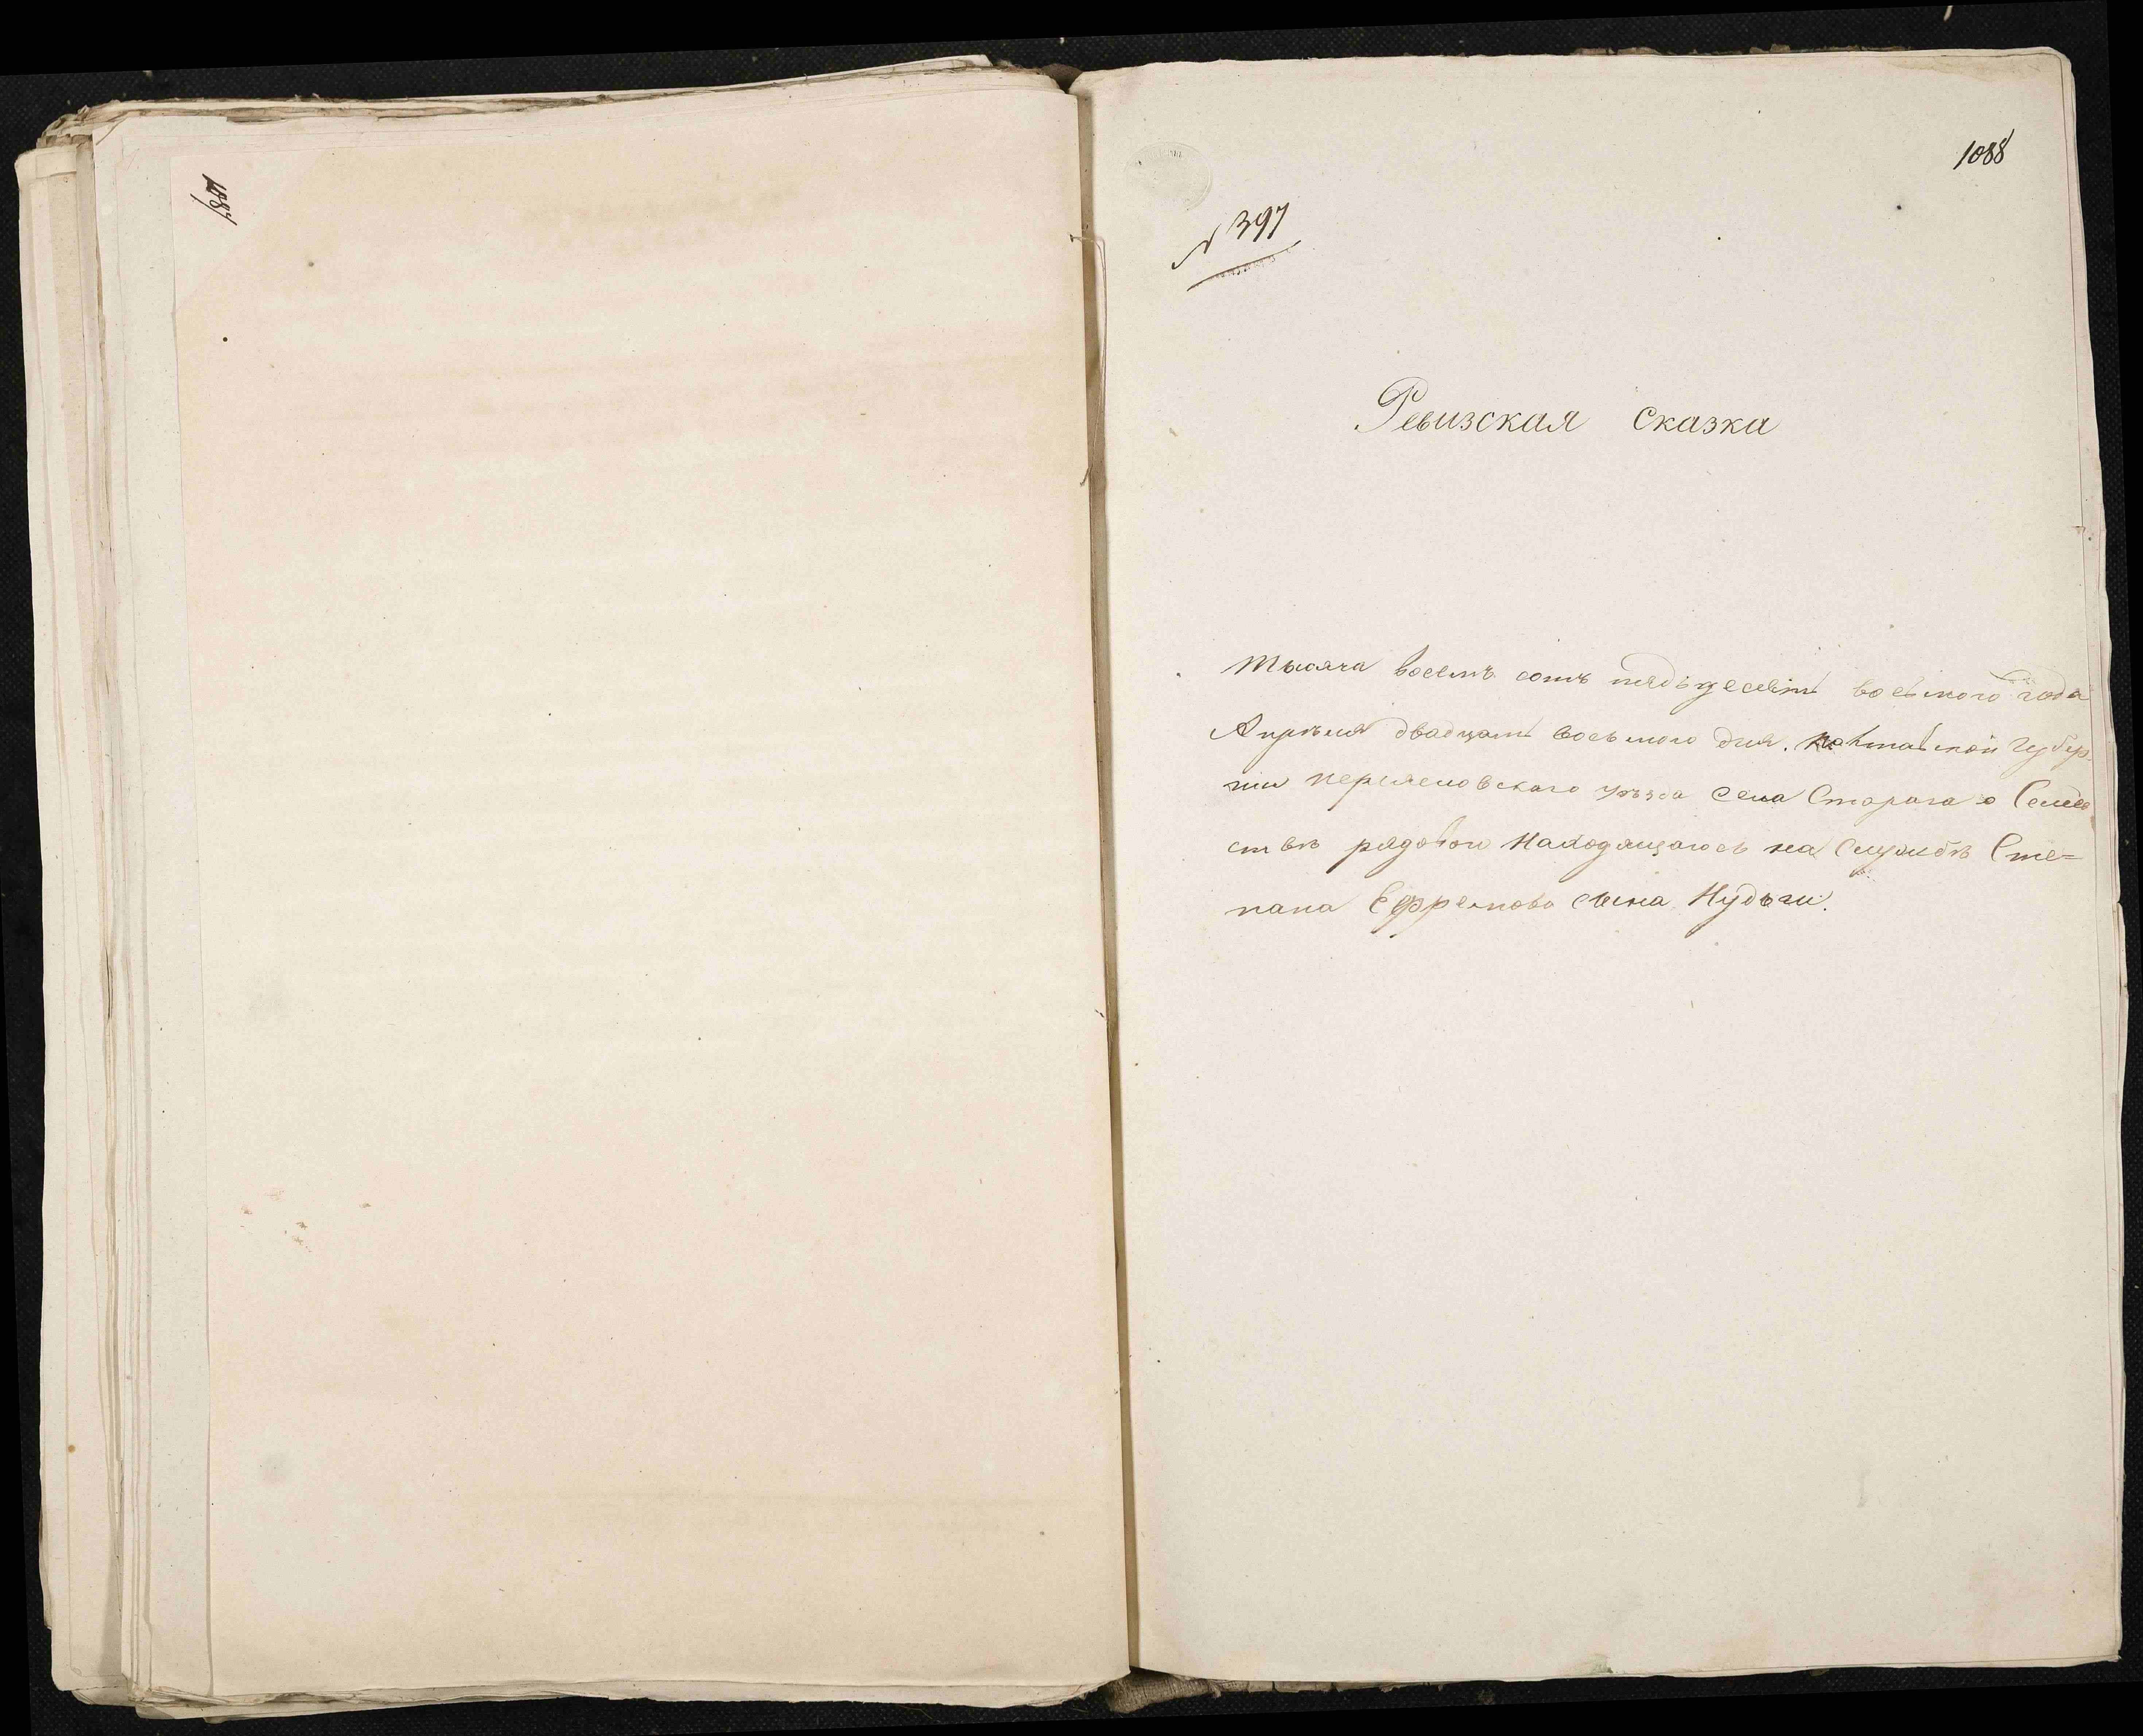 1087
1088
N 397
Ревизская сказка
Тысяча восемь сотъ пядьдесятъ восьмого года
Апрѣля двадцать восьмого дня. полтавской губер.
нии переясловскаго уѣзда села Старага о Семей
ствѣ рядового находящагось на Службѣ Сте=
пана Ефремова сына Нудьги.